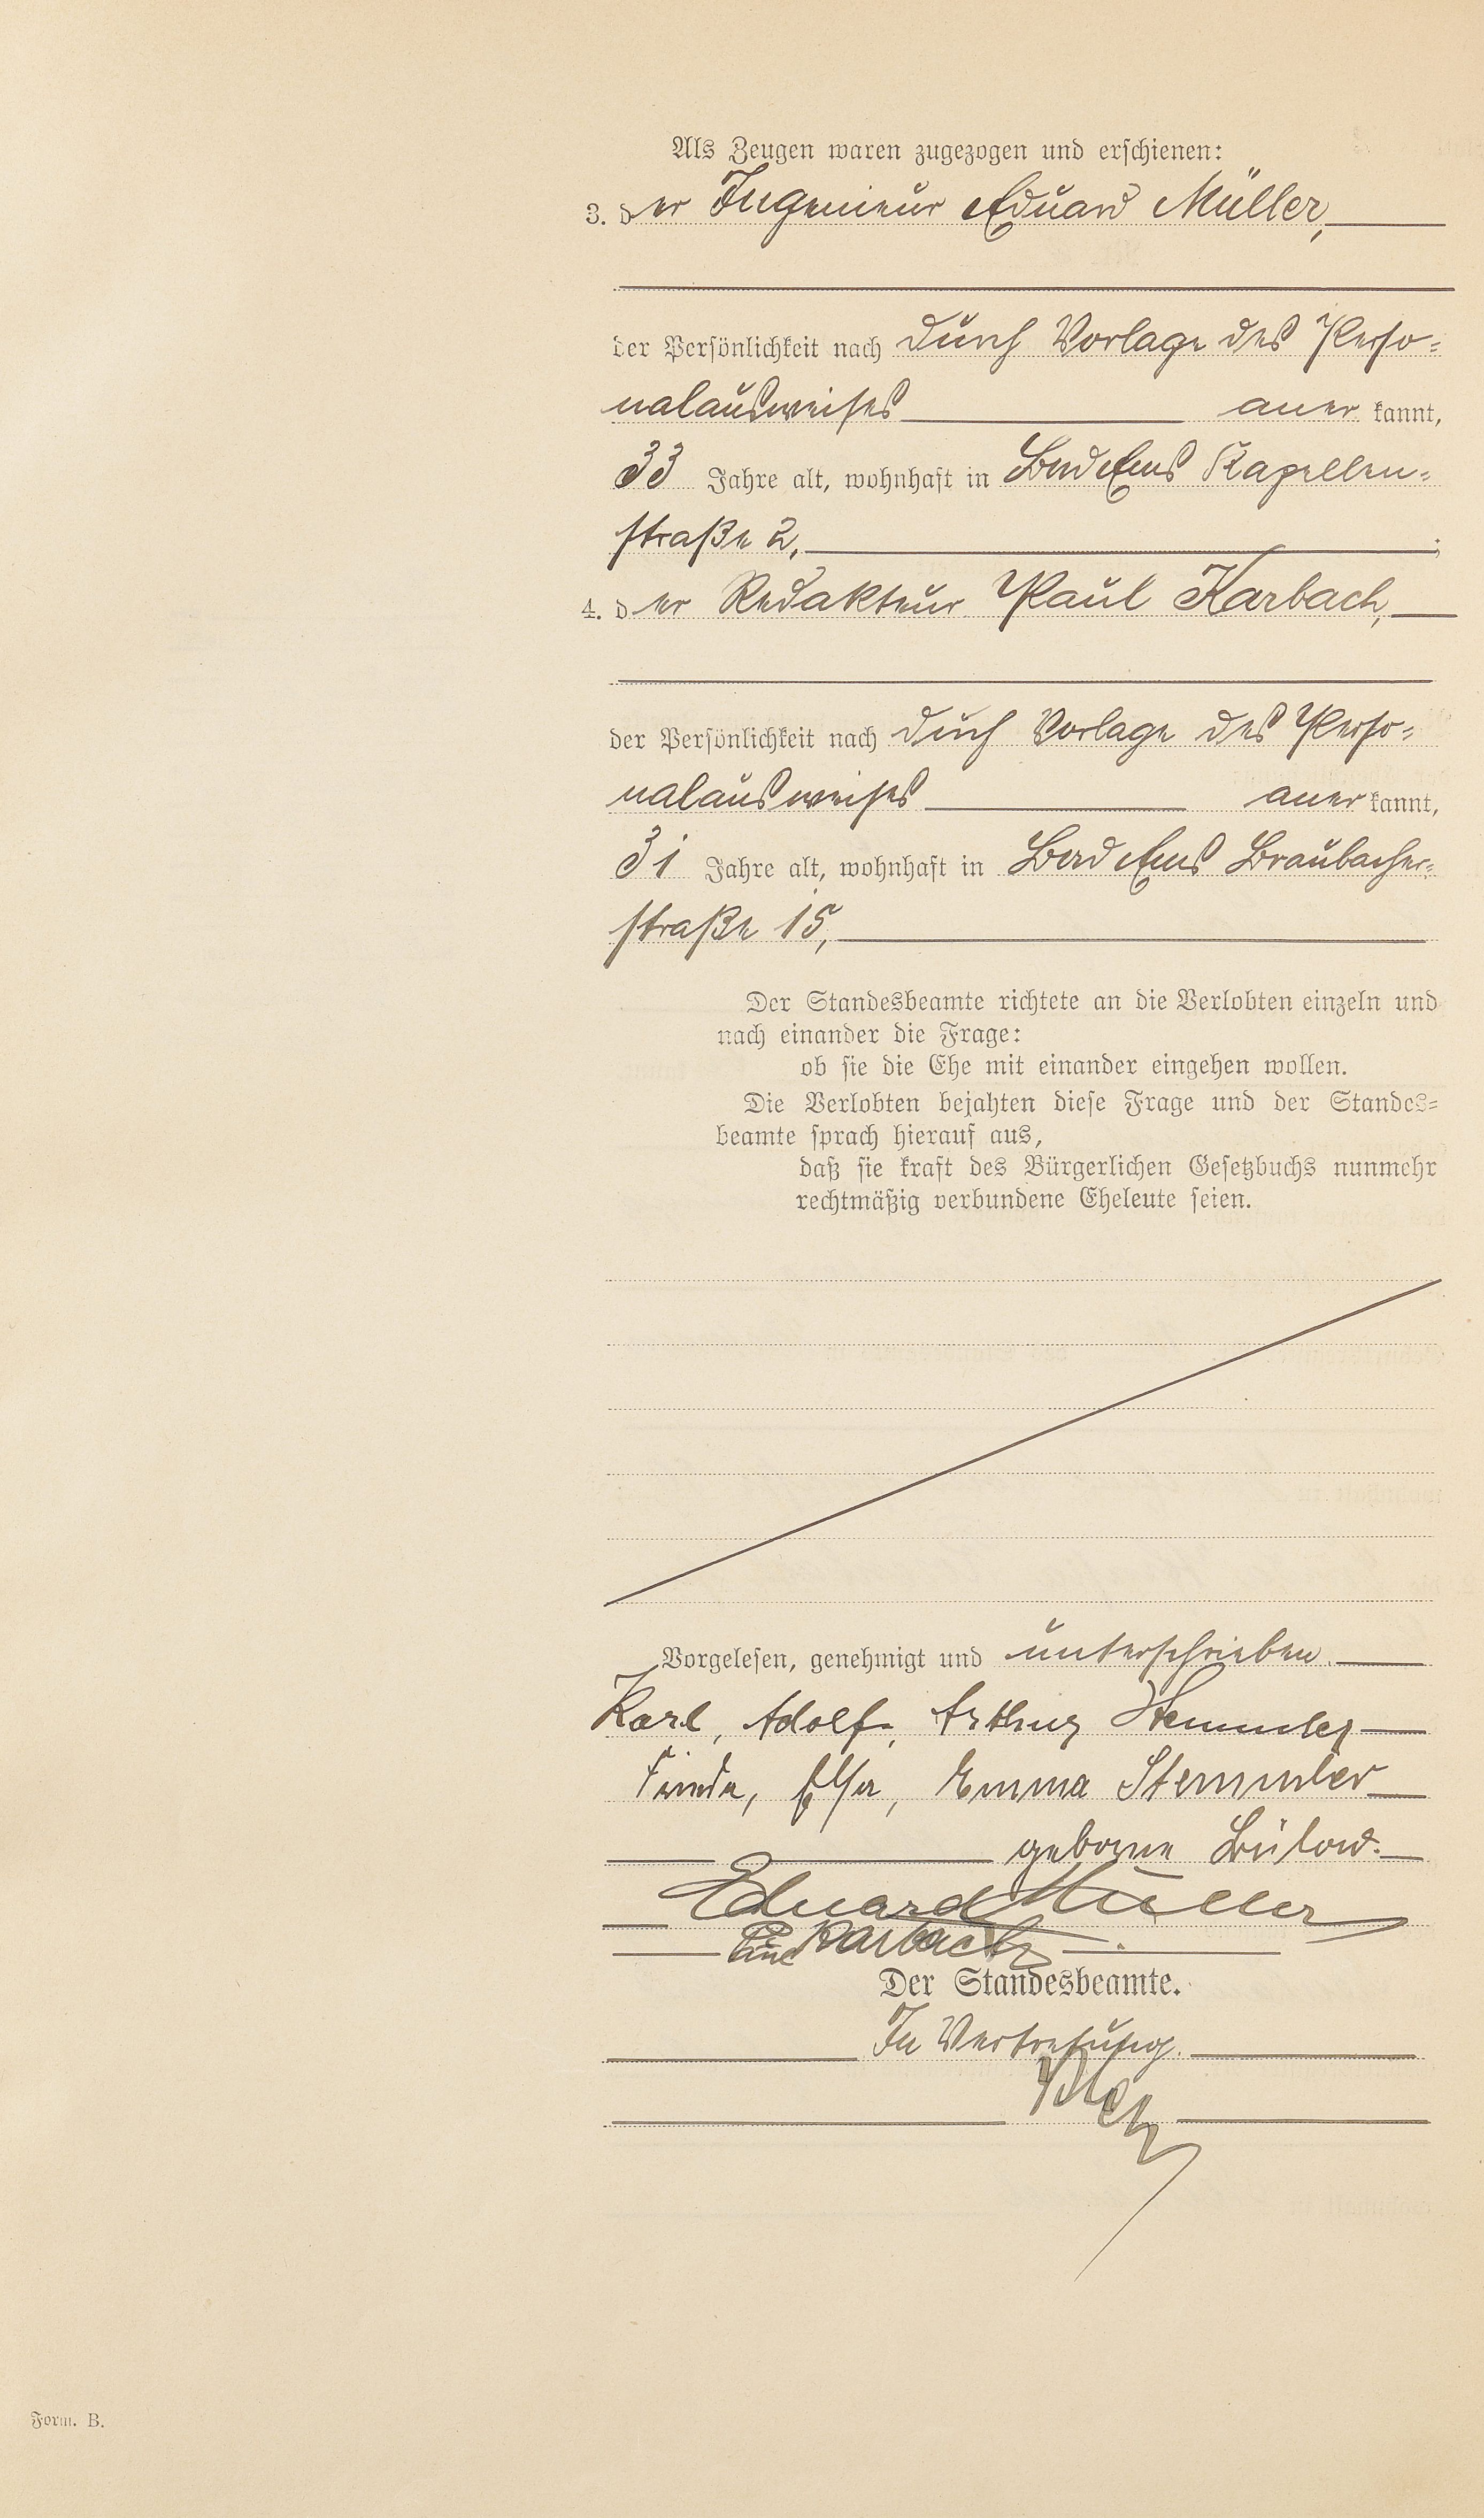 Als Zeugen waren zugezogen und erschienen:
3. der Ingenieur Eduard Müller,
der Persönlichkeit nach durch Vorlage des Perso-
nalausweises aner kannt,
33 Jahre alt, wohnhaft in Bad Ems Kapellen-
straße 2, ;
4. der Redakteur Paul Karbach,
der Persönlichkeit nach durch Vorlage des Perso-
nalausweises aner kannt,
31 Jahre alt, wohnhaft in Bad Ems Braubacher-
straße 15,
Der Standesbeamte richtete an die Verlobten einzeln und
nach einander die Frage:
ob sie die Ehe mit einander eingehen wollen.
Die Verlobten bejahten diese Frage und der Standes-
beamte sprach hierauf aus,
daß sie kraft des Bürgerlichen Gesetzbuchs nunmehr
rechtmäßig verbundene Eheleute seien.
Vorgelesen, genehmigt und unterschrieben.
Karl, Adolf, Arthur Stemmler
Elsa, Emma Stemmler
geborene Bülow.
Eduard Müller
Karbach
Der Standesbeamte.
In Vertretung.
Form. B.